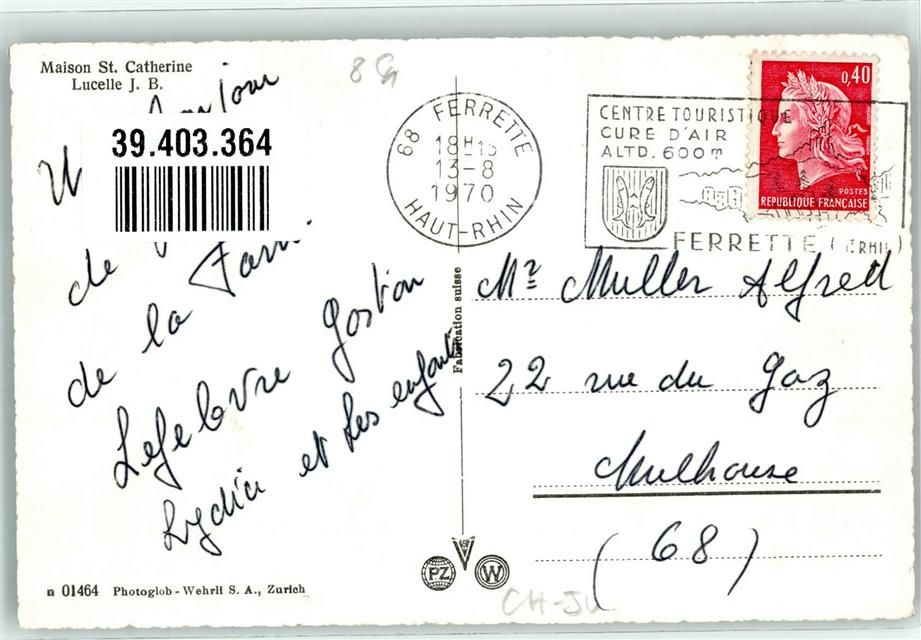 Maison St. Catherine
Lucelle J. B.
8
39.403.364
de
de la Fam
de
Lefebvre Gaston
Lydia et les enfants
n 01464 Photoglob - Wehrli S. A., Zurich
Fabrication suisse
PZ
W
68 FERRETTE
18H15
13-8
1970
HAUT-RHIN
CENTRE TOURISTIQUE
CURE D'AIR
ALTD. 600m
FERRETTE (HT RHIN)
0,40
POSTES
REPUBLIQUE FRANÇAISE
Mr Muller Alfred
22 rue du Gaz
Mulhouse
(68)
CH-JU